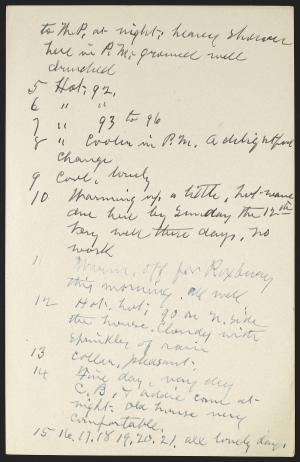 to M.P. at night; heavy shower
here in P.M., ground well
drenched
5 Hot; 92.
6 " "
7 " 93 to 96
8 " Cooler in P.M. A delightful
change
9 Cool, lovely
10 Warming up a little, hot-wave
due here by Sunday the 12th
very well these days. No
work
11 Warm, off for Roxbury
this morning. All well
12 Hot, hot; 90 on N. side
the house. Cloudy with
sprinkley of rain
13 cooler, pleasant.
14 Fine day, very dry
C.B. & Addie come at
night. Old house very
comfortable.
15 16. 17. 18 19. 20. 21. all lovely days,